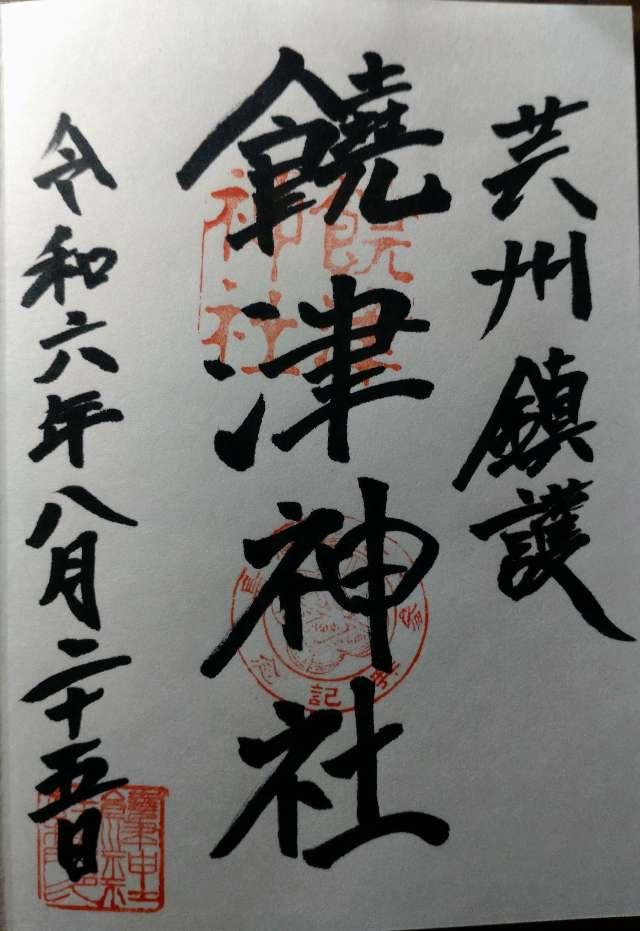 芸州鎮護
饒津神社
令和六年八月二十五日
饒津
神社